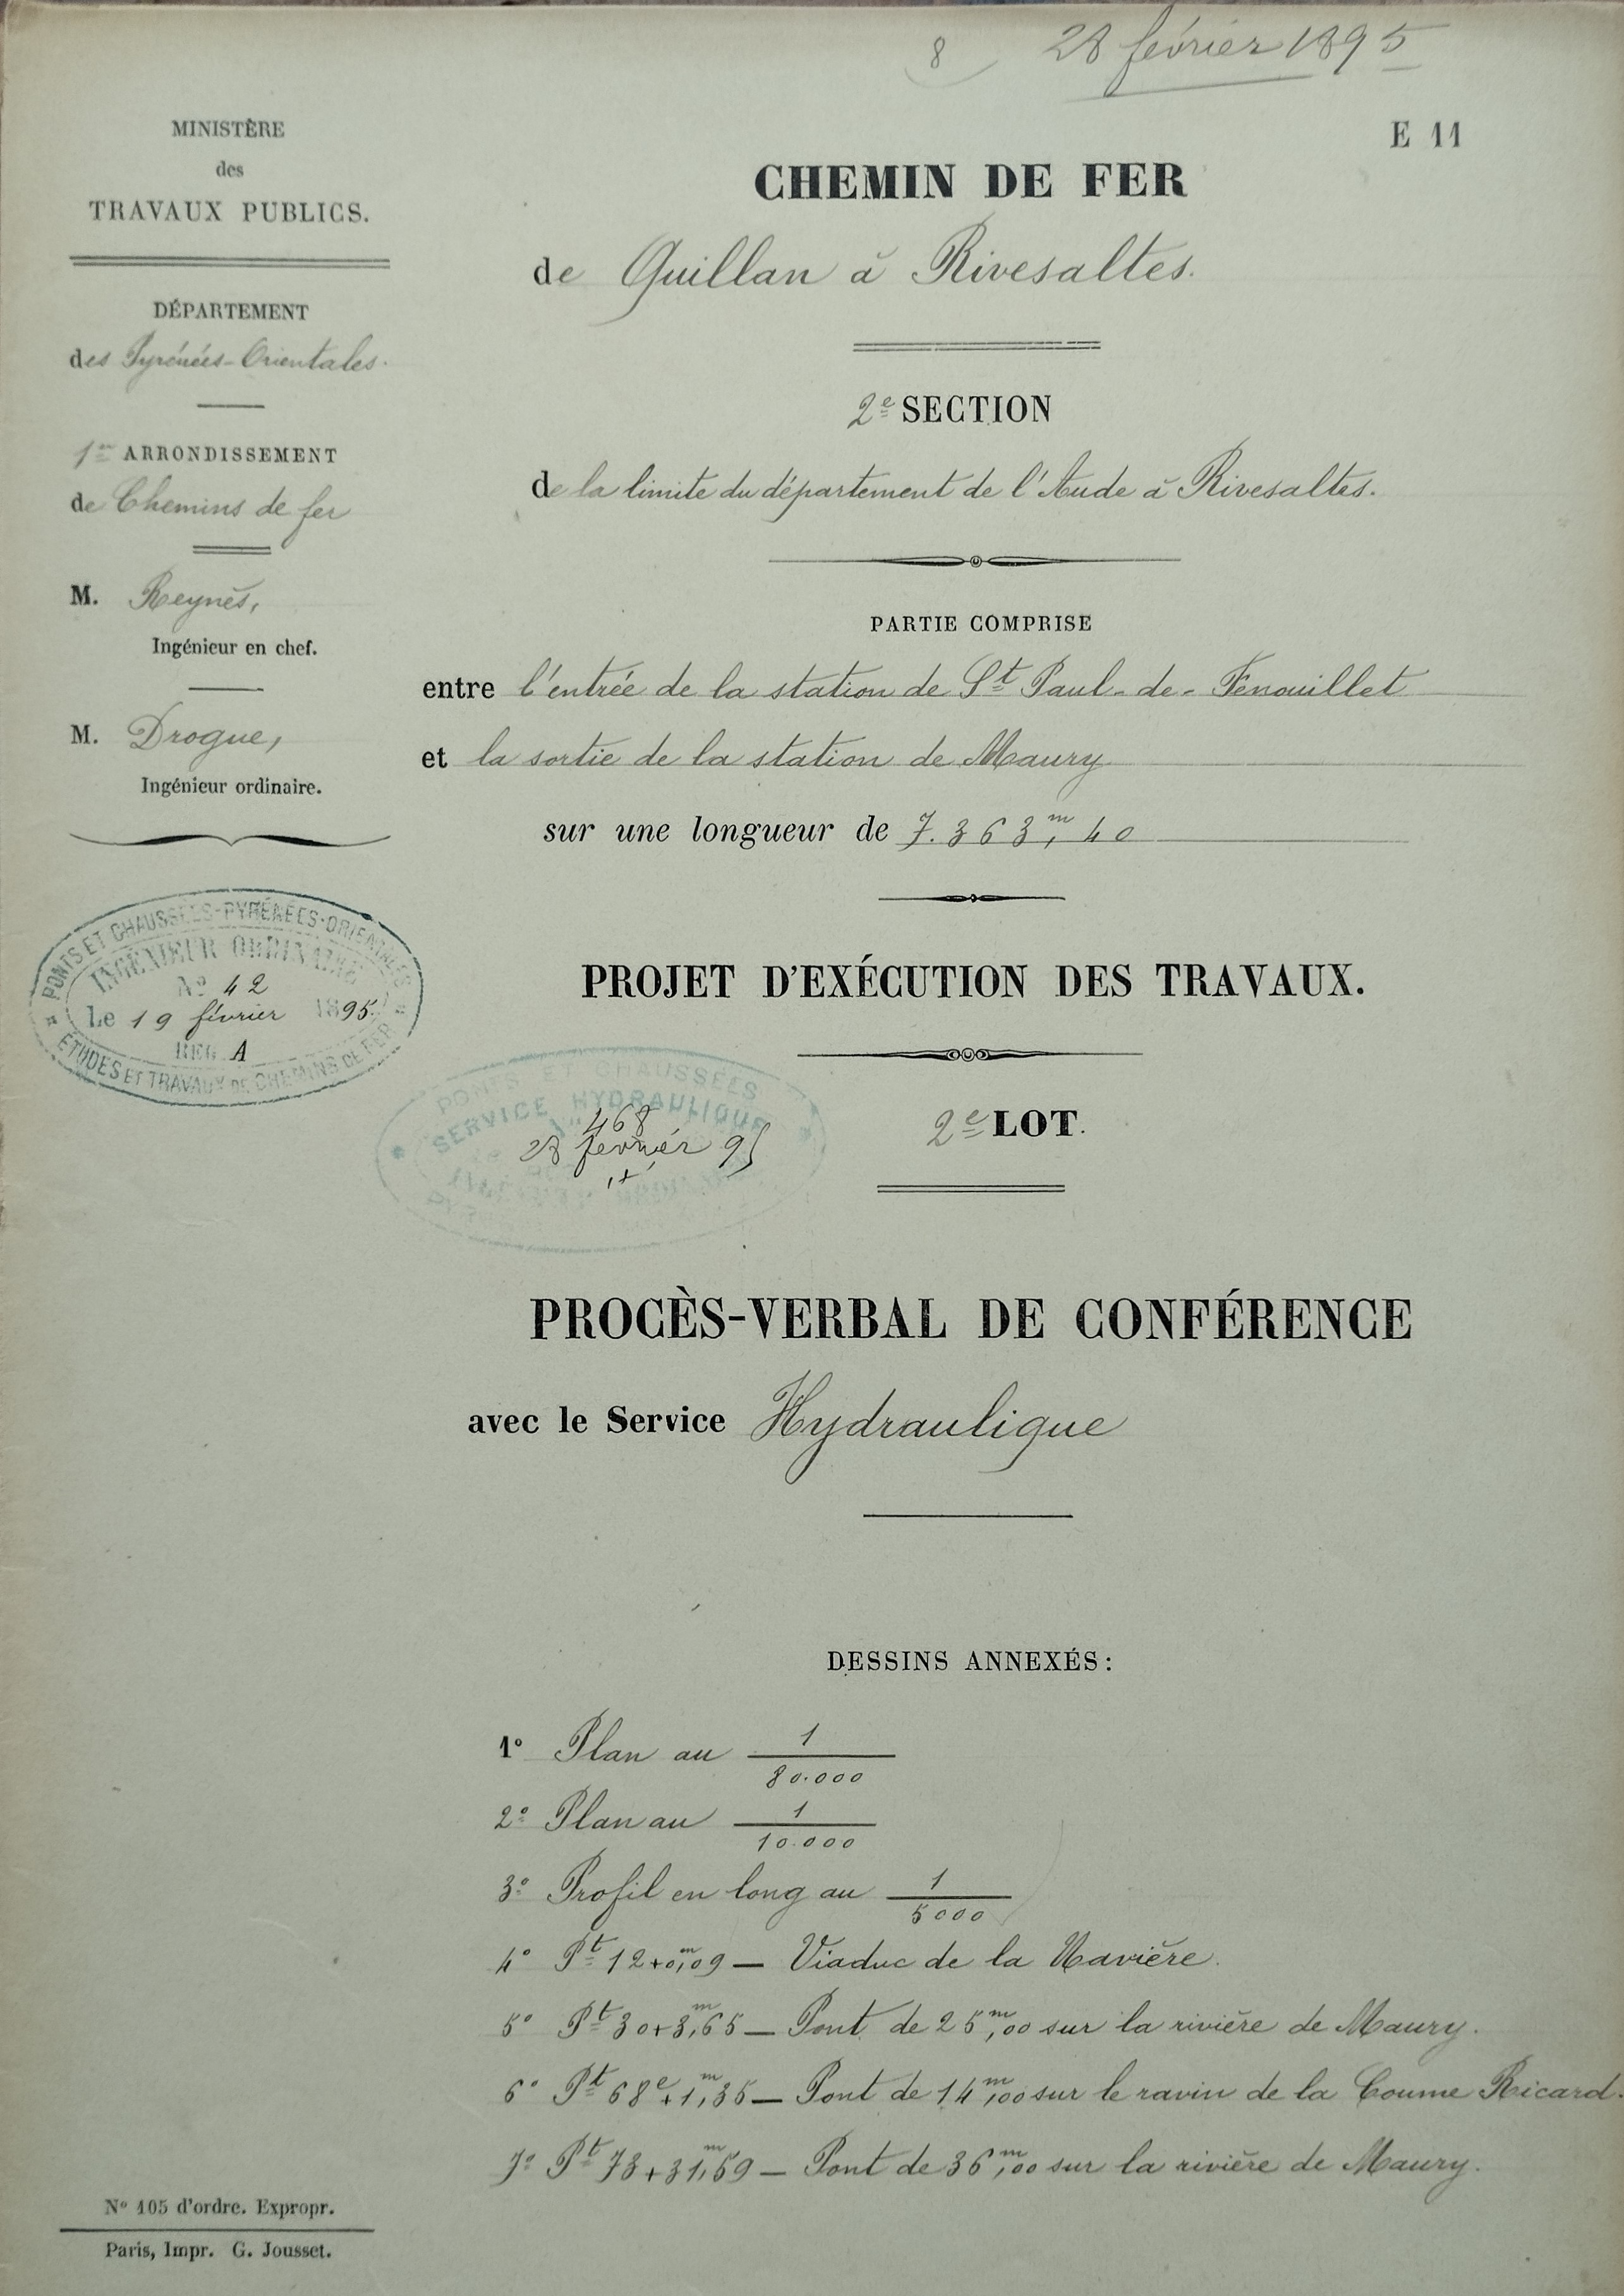 8 28 février 1895
E 11
MINISTÈRE
des
TRAVAUX PUBLICS.
DÉPARTEMENT
des Pyrénées-Orientales.
1er ARRONDISSEMENT
de Chemins de fer
M. Reynès,
Ingénieur en chef.
M. Drogue,
Ingénieur ordinaire.
PONTS ET CHAUSSÉES-PYRÉNÉES-ORIENTALES
INGÉNIEUR ORDINAIRE
No 42
Le 19 février 1895
REG. A
ÉTUDES ET TRAVAUX DE CHEMINS DE FER
CHEMIN DE FER
de Quillan à Rivesaltes.
2e SECTION
de la limite du département de l'Aude à Rivesaltes.
PARTIE COMPRISE
entre l'entrée de la station de St Paul-de-Fenouillet
et la sortie de la station de Maury
sur une longueur de 7.363m,40
PROJET D'EXÉCUTION DES TRAVAUX.
PONTS ET CHAUSSÉES
SERVICE HYDRAULIQUE
468
28 février 95
2e LOT.
PROCÈS-VERBAL DE CONFÉRENCE
avec le Service Hydraulique
DESSINS ANNEXÉS:
1º Plan au 1/80.000
2º Plan au 1/10.000
3º Profil en long au 1/5000
4º Pt 12+0m,09 — Viaduc de la Navière.
5º Pt 30+3m,65 — Pont de 25m,00 sur la rivière de Maury.
6º Pt 68e+1m,35 — Pont de 14m,00 sur le ravin de la Coume Ricard.
7º Pt 73+31m,59 — Pont de 36m,00 sur la rivière de Maury.
Nº 105 d'ordre. Expropr.
Paris, Impr. G. Jousset.